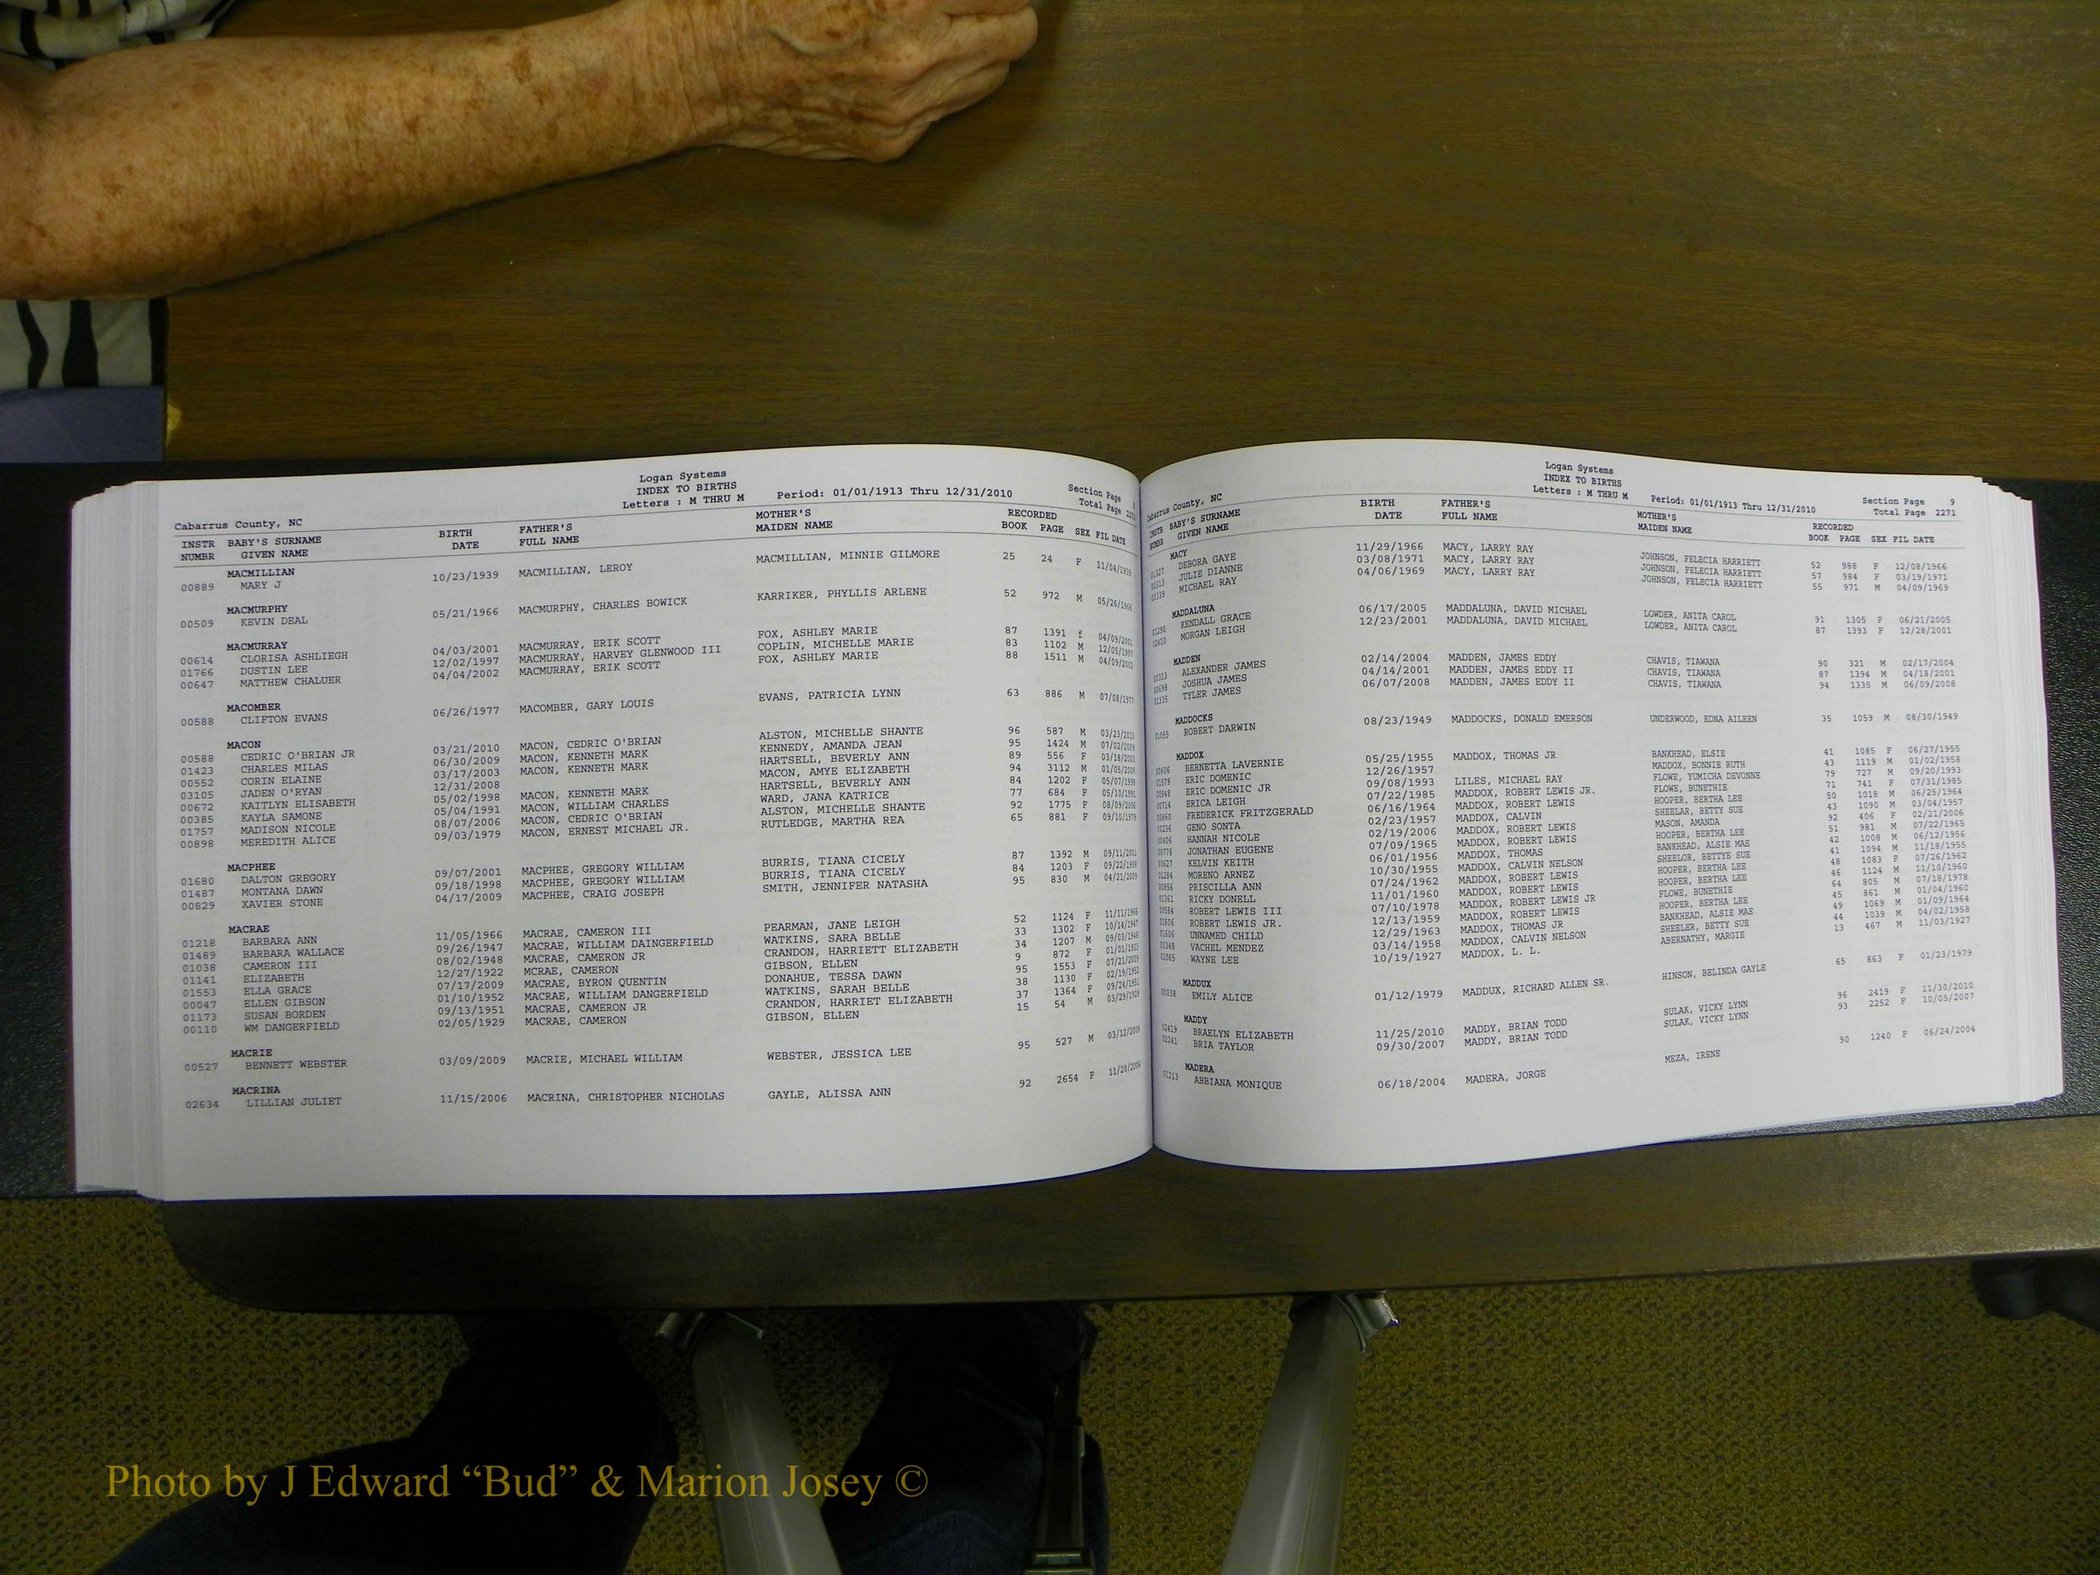 Logan Systems
INDEX TO BIRTHS
Letters : M THRU M Period: 01/01/1913 Thru 12/31/2010
Section Page
Total Page
Cabarrus County, NC
INSTR BABY'S SURNAME BIRTH FATHER'S MOTHER'S RECORDED
NUMBR GIVEN NAME DATE FULL NAME MAIDEN NAME BOOK PAGE SEX FIL DATE
MACMILLIAN
00889 MARY J 10/23/1939 MACMILLIAN, LEROY MACMILLIAN, MINNIE GILMORE 25 24 F 11/04/1939
MACMURPHY
00509 KEVIN DEAL 05/21/1966 MACMURPHY, CHARLES BOWICK KARRIKER, PHYLLIS ARLENE 52 972 M 05/26/1966
MACMURRAY
00614 CLORISA ASHLIEGH 04/03/2001 MACMURRAY, ERIK SCOTT FOX, ASHLEY MARIE 87 1391 f 04/09/2001
01766 DUSTIN LEE 12/02/1997 MACMURRAY, HARVEY GLENWOOD III COPLIN, MICHELLE MARIE 83 1102 M 12/05/1997
00647 MATTHEW CHALUER 04/04/2002 MACMURRAY, ERIK SCOTT FOX, ASHLEY MARIE 88 1511 M 04/09/2002
MACOMBER
00588 CLIFTON EVANS 06/26/1977 MACOMBER, GARY LOUIS EVANS, PATRICIA LYNN 63 886 M 07/08/1977
MACON
00588 CEDRIC O'BRIAN JR 03/21/2010 MACON, CEDRIC O'BRIAN ALSTON, MICHELLE SHANTE 96 587 M 03/23/2010
01423 CHARLES MILAS 06/30/2009 MACON, KENNETH MARK KENNEDY, AMANDA JEAN 95 1424 M 07/02/2009
00552 CORIN ELAINE 03/17/2003 MACON, KENNETH MARK HARTSELL, BEVERLY ANN 89 556 F 03/18/2003
03105 JADEN O'RYAN 12/31/2008 MACON, AMYE ELIZABETH 94 3112 M 01/05/2009
00672 KAITLYN ELISABETH 05/02/1998 MACON, KENNETH MARK HARTSELL, BEVERLY ANN 84 1202 F 05/07/1998
00385 KAYLA SAMONE 05/04/1991 MACON, WILLIAM CHARLES WARD, JANA KATRICE 77 684 F 05/10/1991
01757 MADISON NICOLE 08/07/2006 MACON, CEDRIC O'BRIAN ALSTON, MICHELLE SHANTE 92 1775 F 08/09/2006
00898 MEREDITH ALICE 09/03/1979 MACON, ERNEST MICHAEL JR. RUTLEDGE, MARTHA REA 65 881 F 09/10/1979
MACPHEE
01680 DALTON GREGORY 09/07/2001 MACPHEE, GREGORY WILLIAM BURRIS, TIANA CICELY 87 1392 M 09/11/2001
01487 MONTANA DAWN 09/18/1998 MACPHEE, GREGORY WILLIAM BURRIS, TIANA CICELY 84 1203 F 09/22/1998
00829 XAVIER STONE 04/17/2009 MACPHEE, CRAIG JOSEPH SMITH, JENNIFER NATASHA 95 830 M 04/21/2009
MACRAE
01218 BARBARA ANN 11/05/1966 MACRAE, CAMERON III PEARMAN, JANE LEIGH 52 1124 F 11/11/1966
01489 BARBARA WALLACE 09/26/1947 MACRAE, WILLIAM DAINGERFIELD WATKINS, SARA BELLE 33 1302 F 10/14/1947
01038 CAMERON III 08/02/1948 MACRAE, CAMERON JR CRANDON, HARRIETT ELIZABETH 34 1207 M 09/03/1948
01141 ELIZABETH 12/27/1922 MCRAE, CAMERON GIBSON, ELLEN 9 872 F 01/01/1923
01553 ELLA GRACE 07/17/2009 MACRAE, BYRON QUENTIN DONAHUE, TESSA DAWN 95 1553 F 07/21/2009
00047 ELLEN GIBSON 01/10/1952 MACRAE, WILLIAM DANGERFIELD WATKINS, SARAH BELLE 38 1130 F 02/19/1952
01173 SUSAN BORDEN 09/13/1951 MACRAE, CAMERON JR CRANDON, HARRIET ELIZABETH 37 1364 F 09/24/1951
00110 WM DANGERFIELD 02/05/1929 MACRAE, CAMERON GIBSON, ELLEN 15 54 M 03/29/1929
MACRIE
00527 BENNETT WEBSTER 03/09/2009 MACRIE, MICHAEL WILLIAM WEBSTER, JESSICA LEE 95 527 M 03/12/2009
MACRINA
02634 LILLIAN JULIET 11/15/2006 MACRINA, CHRISTOPHER NICHOLAS GAYLE, ALISSA ANN 92 2654 F 11/20/2006
Logan Systems
INDEX TO BIRTHS
Letters : M THRU M Period: 01/01/1913 Thru 12/31/2010
Section Page 9
Total Page 2271
Cabarrus County, NC
INSTR BABY'S SURNAME BIRTH FATHER'S MOTHER'S RECORDED
NUMBR GIVEN NAME DATE FULL NAME MAIDEN NAME BOOK PAGE SEX FIL DATE
MACY
01327 DEBORA GAYE 11/29/1966 MACY, LARRY RAY JOHNSON, FELECIA HARRIETT 52 988 F 12/08/1966
00313 JULIE DIANNE 03/08/1971 MACY, LARRY RAY JOHNSON, FELECIA HARRIETT 57 984 F 03/19/1971
00339 MICHAEL RAY 04/06/1969 MACY, LARRY RAY JOHNSON, FELECIA HARRIETT 55 971 M 04/09/1969
MADDALUNA
01290 KENDALL GRACE 06/17/2005 MADDALUNA, DAVID MICHAEL LOWDER, ANITA CAROL 91 1305 F 06/21/2005
02410 MORGAN LEIGH 12/23/2001 MADDALUNA, DAVID MICHAEL LOWDER, ANITA CAROL 87 1393 F 12/28/2001
MADDEN
00313 ALEXANDER JAMES 02/14/2004 MADDEN, JAMES EDDY CHAVIS, TIAWANA 90 321 M 02/17/2004
00698 JOSHUA JAMES 04/14/2001 MADDEN, JAMES EDDY II CHAVIS, TIAWANA 87 1394 M 04/18/2001
01335 TYLER JAMES 06/07/2008 MADDEN, JAMES EDDY II CHAVIS, TIAWANA 94 1335 M 06/09/2008
MADDOCKS
01055 ROBERT DARWIN 08/23/1949 MADDOCKS, DONALD EMERSON UNDERWOOD, EDNA AILEEN 35 1059 M 08/30/1949
MADDOX
00606 BERNETTA LAVERNIE 05/25/1955 MADDOX, THOMAS JR BANKHEAD, ELSIE 41 1085 F 06/27/1955
01579 ERIC DOMENIC 12/26/1957 MADDOX, BONNIE RUTH 43 1119 M 01/02/1958
00848 ERIC DOMENIC JR 09/08/1993 LILES, MICHAEL RAY FLOWE, YUMICHA DEVONNE 79 727 M 09/20/1993
00714 ERICA LEIGH 07/22/1985 MADDOX, ROBERT LEWIS JR. FLOWE, BUNETHIE 71 741 F 07/31/1985
00660 FREDERICK FRITZGERALD 06/16/1964 MADDOX, ROBERT LEWIS HOOPER, BERTHA LEE 50 1018 M 06/25/1964
00236 GENO SONTA 02/23/1957 MADDOX, CALVIN SHEELAR, BETTY SUE 43 1090 M 03/04/1957
00406 HANNAH NICOLE 02/19/2006 MADDOX, ROBERT LEWIS MASON, AMANDA 92 406 F 02/21/2006
00778 JONATHAN EUGENE 07/09/1965 MADDOX, ROBERT LEWIS HOOPER, BERTHA LEE 51 981 M 07/22/1965
00627 KELVIN KEITH 06/01/1956 MADDOX, THOMAS BANKHEAD, ALSIE MAE 42 1008 M 06/12/1956
01284 MORENO ARNEZ 10/30/1955 MADDOX, CALVIN NELSON SHEELOR, BETTYE SUE 41 1094 M 11/18/1955
00856 PRISCILLA ANN 07/24/1962 MADDOX, ROBERT LEWIS HOOPER, BERTHA LEE 48 1083 F 07/26/1962
01361 RICKY DONELL 11/01/1960 MADDOX, ROBERT LEWIS HOOPER, BERTHA LEE 46 1124 M 11/10/1960
00584 ROBERT LEWIS III 07/10/1978 MADDOX, ROBERT LEWIS JR FLOWE, BUNETHIE 64 805 M 07/18/1978
01606 ROBERT LEWIS JR. 12/13/1959 MADDOX, ROBERT LEWIS HOOPER, BERTHA LEE 45 861 M 01/04/1960
01606 UNNAMED CHILD 12/29/1963 MADDOX, THOMAS JR BANKHEAD, ALSIE MAE 49 1069 M 01/09/1964
00348 VACHEL MENDEZ 03/14/1958 MADDOX, CALVIN NELSON SHEELER, BETTY SUE 44 1039 M 04/02/1958
01065 WAYNE LEE 10/19/1927 MADDOX, L. L. ABERNATHY, MARGIE 13 467 M 11/03/1927
MADDUX
00038 EMILY ALICE 01/12/1979 MADDUX, RICHARD ALLEN SR. HINSON, BELINDA GAYLE 65 863 F 01/23/1979
MADDY
02419 BRAELYN ELIZABETH 11/25/2010 MADDY, BRIAN TODD SULAK, VICKY LYNN 96 2419 F 11/30/2010
02241 BRIA TAYLOR 09/30/2007 MADDY, BRIAN TODD SULAK, VICKY LYNN 93 2252 F 10/05/2007
MADERA
01213 ABBIANA MONIQUE 06/18/2004 MADERA, JORGE MEZA, IRENE 90 1240 F 06/24/2004
Photo by J Edward “Bud” & Marion Josey ©